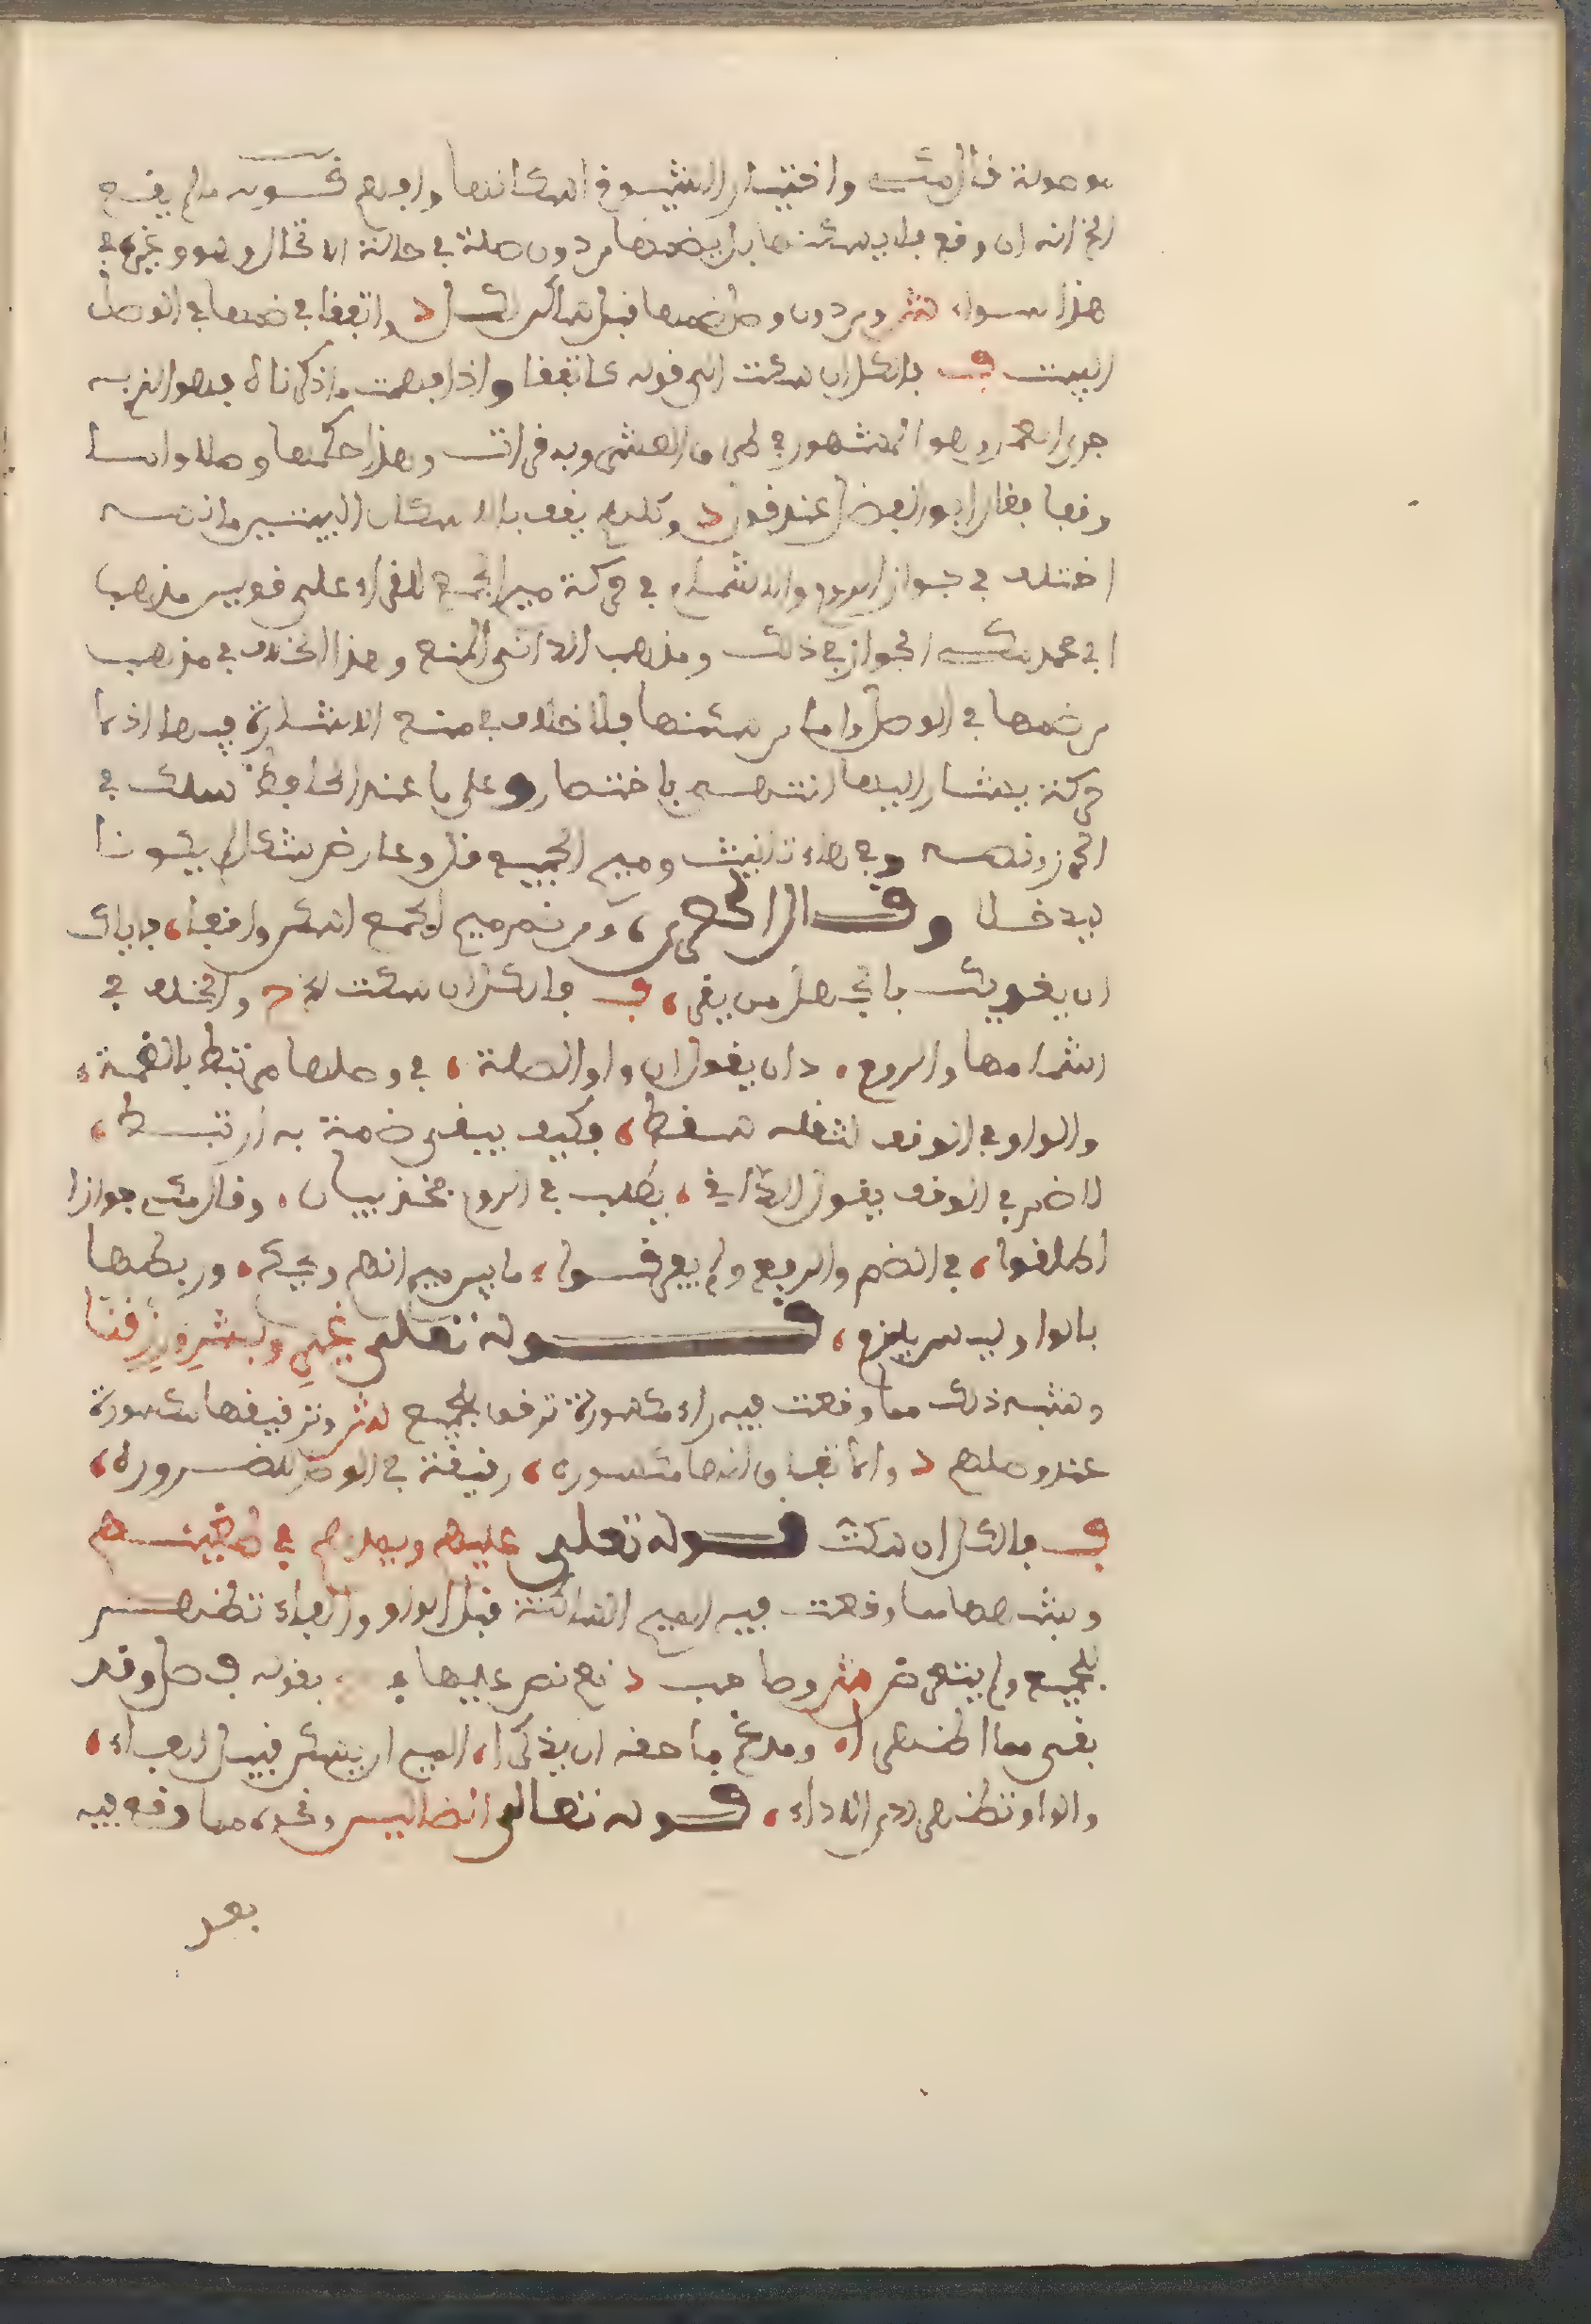 موصولة قال مك واختيار الشيوخ اسكانها واجمع شوية ما لم يفتح
الخ انه ان وقع فلا يسكنها بل يضمها من دون صلة في حالة الاتخال وهو وغيره في
هذا سواء شر ومن دون وصل ضمها قبل ساكن لكل د واتفقا في ضمها في الوصل
البيت ف بالكل ان سكنت الى قوله كما تقفا واذا فهمت ما ذكرناه فهو الذي به
جرى العمل وهو المشهور في طرق العشر وبه قرات وهذا حكمها وصلا واما
وقفا فقال ابو الفضل عند قول د وكلهم يقف بالاسكان البيتين ما نصه
اختلف في جواز الروم والاشمام في حركة ميم الجمع للقراء على قولين مذهب
ابي محمد مك الجواز في ذلك ومذهب الداني المنع وهذا الخلاف في مذهب
من ضمها في الوصل واما من سكنها فلا خلاف في منع الاشارة فيها اذ لا
حركة يشار اليها انتهى باختصار وعلى ما عند الحافظ سلك في
الحرز ونصه وفي هاء تانيث وميم الجميع قل وعارض شكل لم يكونا
ليدخلا وقال الحصري، ومن ضم ميم الجمع اسكن واقفا، فاياك
ان يغويك بالجهل من يقرى، ف بالكل ان سكنت الخ د والخلف في
اشمامها والروم، دان يقول ان واو الصلة، في وصلها مرتبط بالضمة،
والواو في الوقف لثقله سقط، فكيف يبقى ضمة به ارتبط،
لا ضم في الوقف يقول الداني، يطلب في الروم فخذ بيان، وقال مك جوازا
اطلقوا، في الضم والرفع ولم يفرقوا، ما بين ميم انهم ويحكم، وربطها
بالواو ليس يلزم، قوله تعلى غير وبشر ورزقنا
وشبه ذلك مما وقعت فيه راء مكسورة ترقق للجميع شر وترقيقها مكسورة
عند وصلهم د والاتفاق انها مكسوره، رقيقة في الوصل للضروره،
ف بالكل ان سكنت قوله تعلى عليهم ويمدهم في طغينهم
وشبهها مما وقعت فيه الميم الساكنة قبل الواو والفاء تظهر
للجميع ولم يتعرض شر وصاحب د نعم نص عليها بقوله ف صل وقد
بقى مما اظهرا، ومدغم ما حقه ان يذكرا، الميم ان يسكن قبيل الفاء،
والواو تظهر لدى الاداء، قوله تعالى الضالين ونحوه مما وقع فيه
بعد